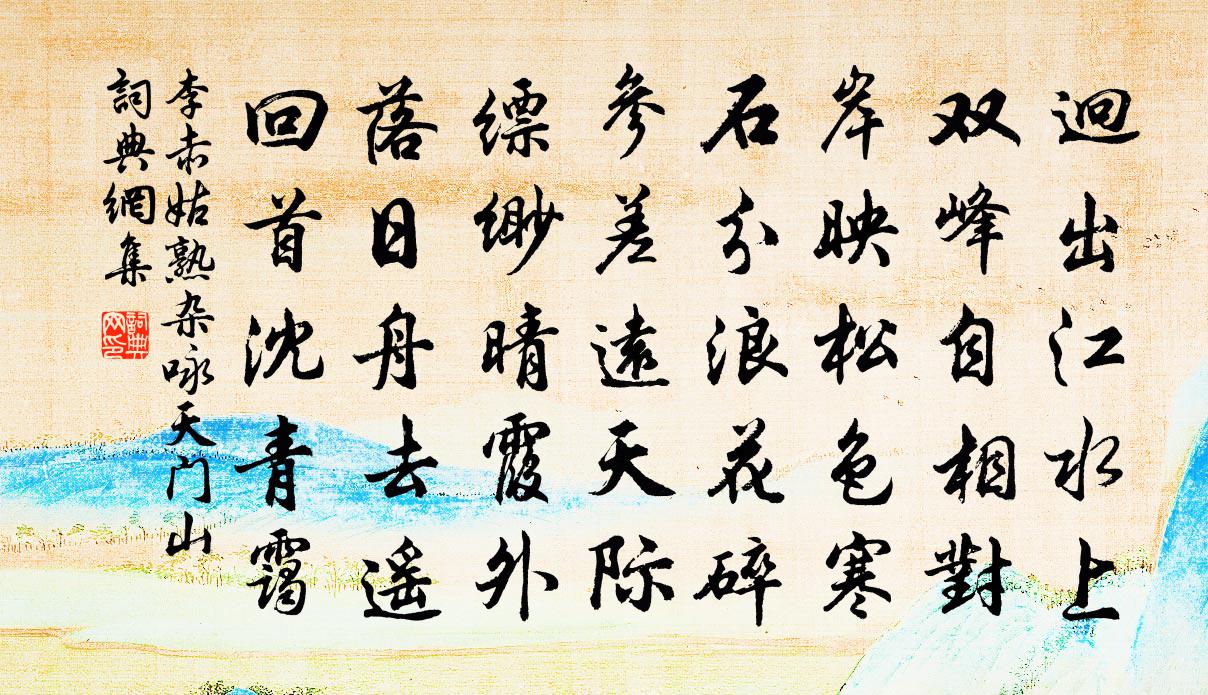 迥出江水上
双峰自相對
岸映松色寒
石分浪花碎
參差遠天际
缥缈晴霞外
落日舟去遥
回首沈青靄
李赤姑熟杂咏天门山
詞典網集
詞典网印